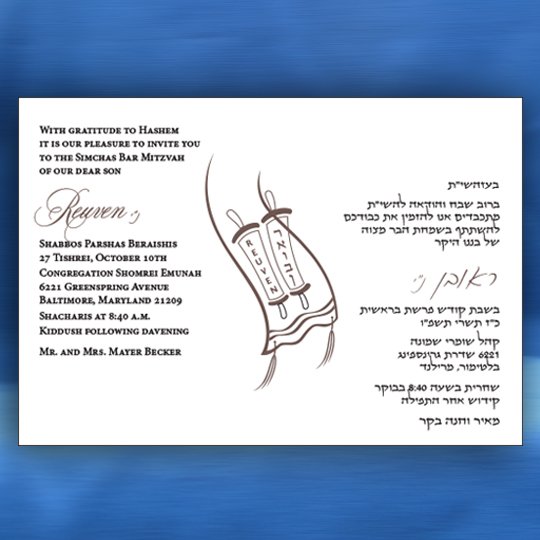 With gratitude to Hashem
it is our pleasure to invite you
to the Simchas Bar Mitzvah
of our dear son
Reuven נ"י
Shabbos Parshas Beraishis
27 Tishrei, October 10th
Congregation Shomrei Emunah
6221 Greenspring Avenue
Baltimore, Maryland 21209
Shacharis at 8:40 a.m.
Kiddush following davening
Mr. and Mrs. Mayer Becker
REUVEN
ראובן
בעזהשי"ת
ברוב שבח והודאה להשי"ת
מתכבדים אנו להזמין את כבודכם
להשתתף בשמחת הבר מצוה
של בננו היקר
ראובן נ"י
בשבת קודש פרשת בראשית
כ"ז תשרי תשפ"ו
קהל שומרי אמונה
6221 שדרת גרינספינג
בלטימור, מרילנד
שחרית בשעה 8:40 בבוקר
קידוש אחר התפילה
מאיר וחנה בקר